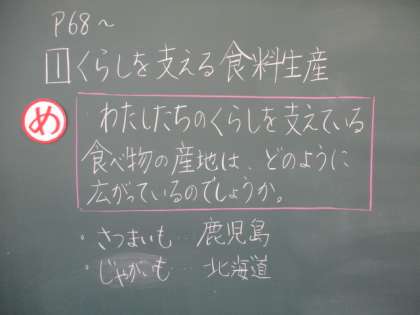 P68～
1 くらしを支える食料生産
め
・わたしたちのくらしを支えている
食べ物の産地は、どのように
広がっているのでしょうか。
・さつまいも…鹿児島
・じゃがいも…北海道